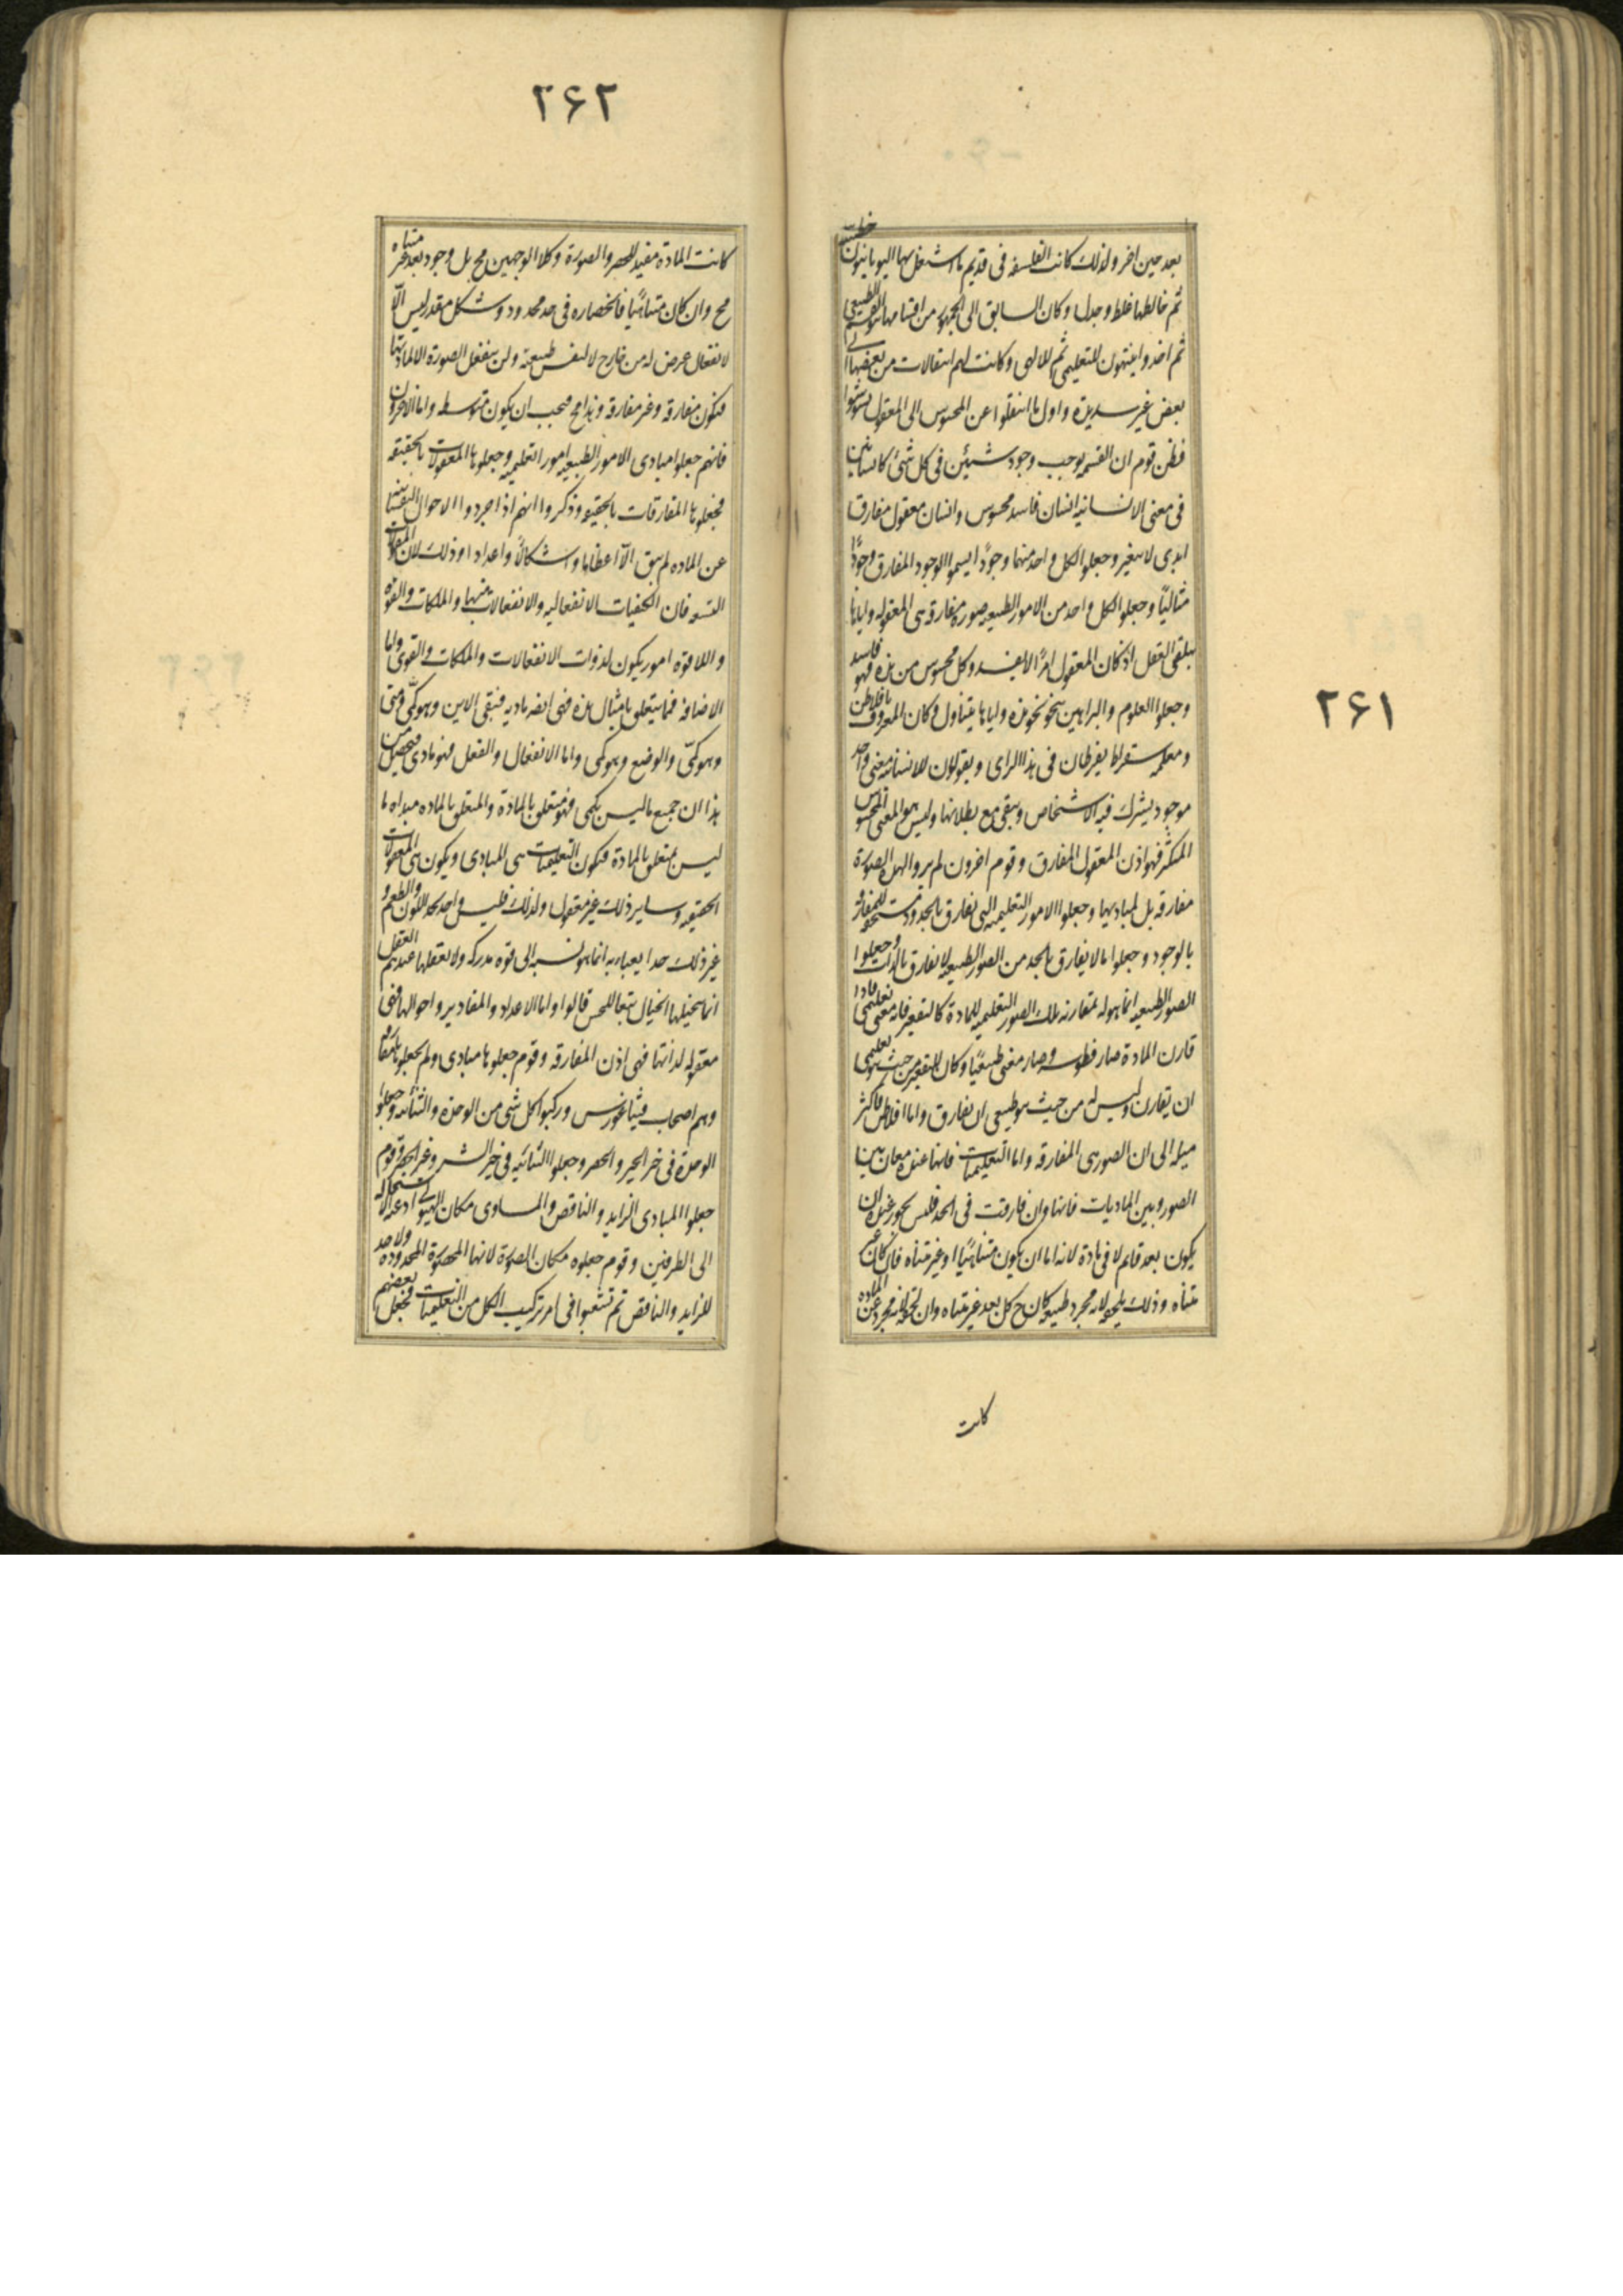 ٢۶١
بعد حين اخر ولذلك كانت الفلسفه فى قديم ما اشتغل بها اليونانيون خطبية
ثم خالطها غلط وجدل وكان السابق الى الجمهور من اقسامها هو القسم الطبيعى
ثم اخذوا ينتبهون للتعليمى ثم للالهى وكانت لهم انتقالات من بعضها الى
بعض غير سديدة واول ما انتقلوا عن المحسوس الى المعقول تشوشوا
فظن قوم ان القسمه يوجب وجود شيئين فى كل شئ كانسانين
فى معنى الانسانيه انسان فاسد محسوس وانسان معقول مفارق
ابدى لا يتغير وجعلوا لكل واحد منهما وجودًا يسموا الوجود المفارق وجودًا
مثاليًا وجعلوا لكل واحد من الامور الطبيعيه صورة مفارقه هى المعقوله واياها
يتلقى العقل اذ كان المعقول امرًا لا يفسد وكل محسوس من هذه فهو فاسد
وجعلوا العلوم والبراهين ينحو نحو هذه واياها يتناول وكان المعروف بافلاطن
ومعلمه سقراط يفرطان فى هذا الراى ويقولون للانسانيه معنى واحد
موجود يشترك فيه الاشخاص ويبقى مع بطلانها وليس هو المعنى المحسوس
المتكثر فهو اذن المعقول المفارق وقوم اخرون لم يروا لهذه الصورة
مفارقه بل لمباديها وجعلوا الامور التعليميه التى تفارق بالحدود مستحقه للمفارقه
بالوجود وجعلوا ما لا يفارق بالحد من الصور الطبيعيه لا تفارق بالذات وجعلوا
الصور الطبيعيه انما هو له بمقارنه تلك الصور التعليميه للمادة كالتقعير فانه معنى تعليمى فاذا
قارن المادة صار فطوسه وصار معنى طبيعيًا وكان للتقعير من حيث هو تعليمى
ان يقارن وليس له من حيث هو طبيعى ان يفارق واما افلاطن فاكثر
ميله الى ان الصور هى المفارقه واما التعليميات فانها عنده معان بين
الصور وبين الماديات فانها وان فارقت فى الحد فليس يجوز عنده ان
يكون بعد قائم لا فى مادة لانه اما ان يكون متناهيًا او غير متناه فان كان غير
متناه وذلك يلحقه لانه مجرد طبيعه كان ح كل بعد غير متناه وان لحقه لانه مجرد عن الماده
كانت
٢۶٢
كانت المادة مفيد للحصر والصورة وكلا الوجهين مح بل وجود بعد غير متناه
مح وان كان متناهيًا فانحصاره فى حد محدود وشكل مقدر ليس الّا
لانفعال عرض له من خارج لا لنفس طبيعته ولن ينفعل الصورة الا لمادتها
فتكون مفارقه وغير مفارقه وهذا مح فيجب ان يكون متوسطه واما الاخرون
فانهم جعلوا مبادى الامور الطبيعيه امورا تعليميه وجعلوها المعقولات بالحقيقه
فجعلوها المفارقات بالحقيقه وذكروا انهم اذا جردوا الاحوال الجسمانيه
عن الماده لم يبق الّا اعظاما واشكالًا واعدادا وذلك لان المقولات
التسعه فان الكيفيات الانفعاليه والانفعالات منها والملكات والقوه
واللا قوه امور يكون لذوات الانفعالات والملكات والقوى واما
الاضافه فما يتعلق بامثال هذه فهى ايضا ماديه فيبقى الاين وهو كمّى ومتى
وهو كمّى والوضع وهو كمى واما الانفعال والفعل فهو مادى فيحصل من
هذا ان جميع ما ليس بكمى فهو متعلق بالمادة والمتعلق بالماده مبداه ما
ليس بمتعلق بالمادة فتكون التعليميات هى المبادى ويكون هى المعقولات
الحقيقيه وساير ذلك غير معقول ولذلك فليس واحد يحد اللون والطعم و
غير ذلك حدا يعباء به انما هو نسبه الى قوه مدركه ولا يعقلها عندهم العقل
انما يتخيلها الخيال تبعا للحس قالوا واما الاعداد والمقادير واحوالها فهى
معقوله لذاتها فهى اذن المفارقه وقوم جعلوها مبادى ولم يجعلوها مفارقه
وهم اصحاب فيثاغورس وركبوا كل شئ من الوحدة والثنائيه وجعلوا
الوحدة فى خير الخير والحصر وجعلوا الثنائيه فى خير الشر وغير الحصر وقوم
جعلوا المبادى الزايد والناقص والمساوى مكان الهيولى اذ عنه الاستحاله
الى الطرفين وقوم جعلوه مكان الصورة لانها المحصورة المحدوده ولا حد
للزايد والناقص ثم تشعبوا فى امر تركيب الكل من التعليميات فجعل بعضهم